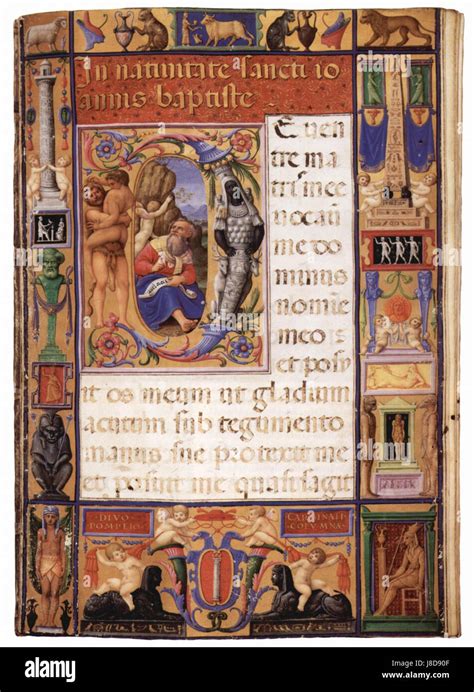 In natiuitate sancti io
annis baptiste
E uen
tre ma
tris mee
uocaũ
me do
minus
nomĩe
meo:
et posu
it os meum ut gladium
acutum sub tegumento
manus sue protexit me
et posuit me quasi sagit
DIVO
POMPEIO
CARDINALI
COLVMNA
alamy stock photo